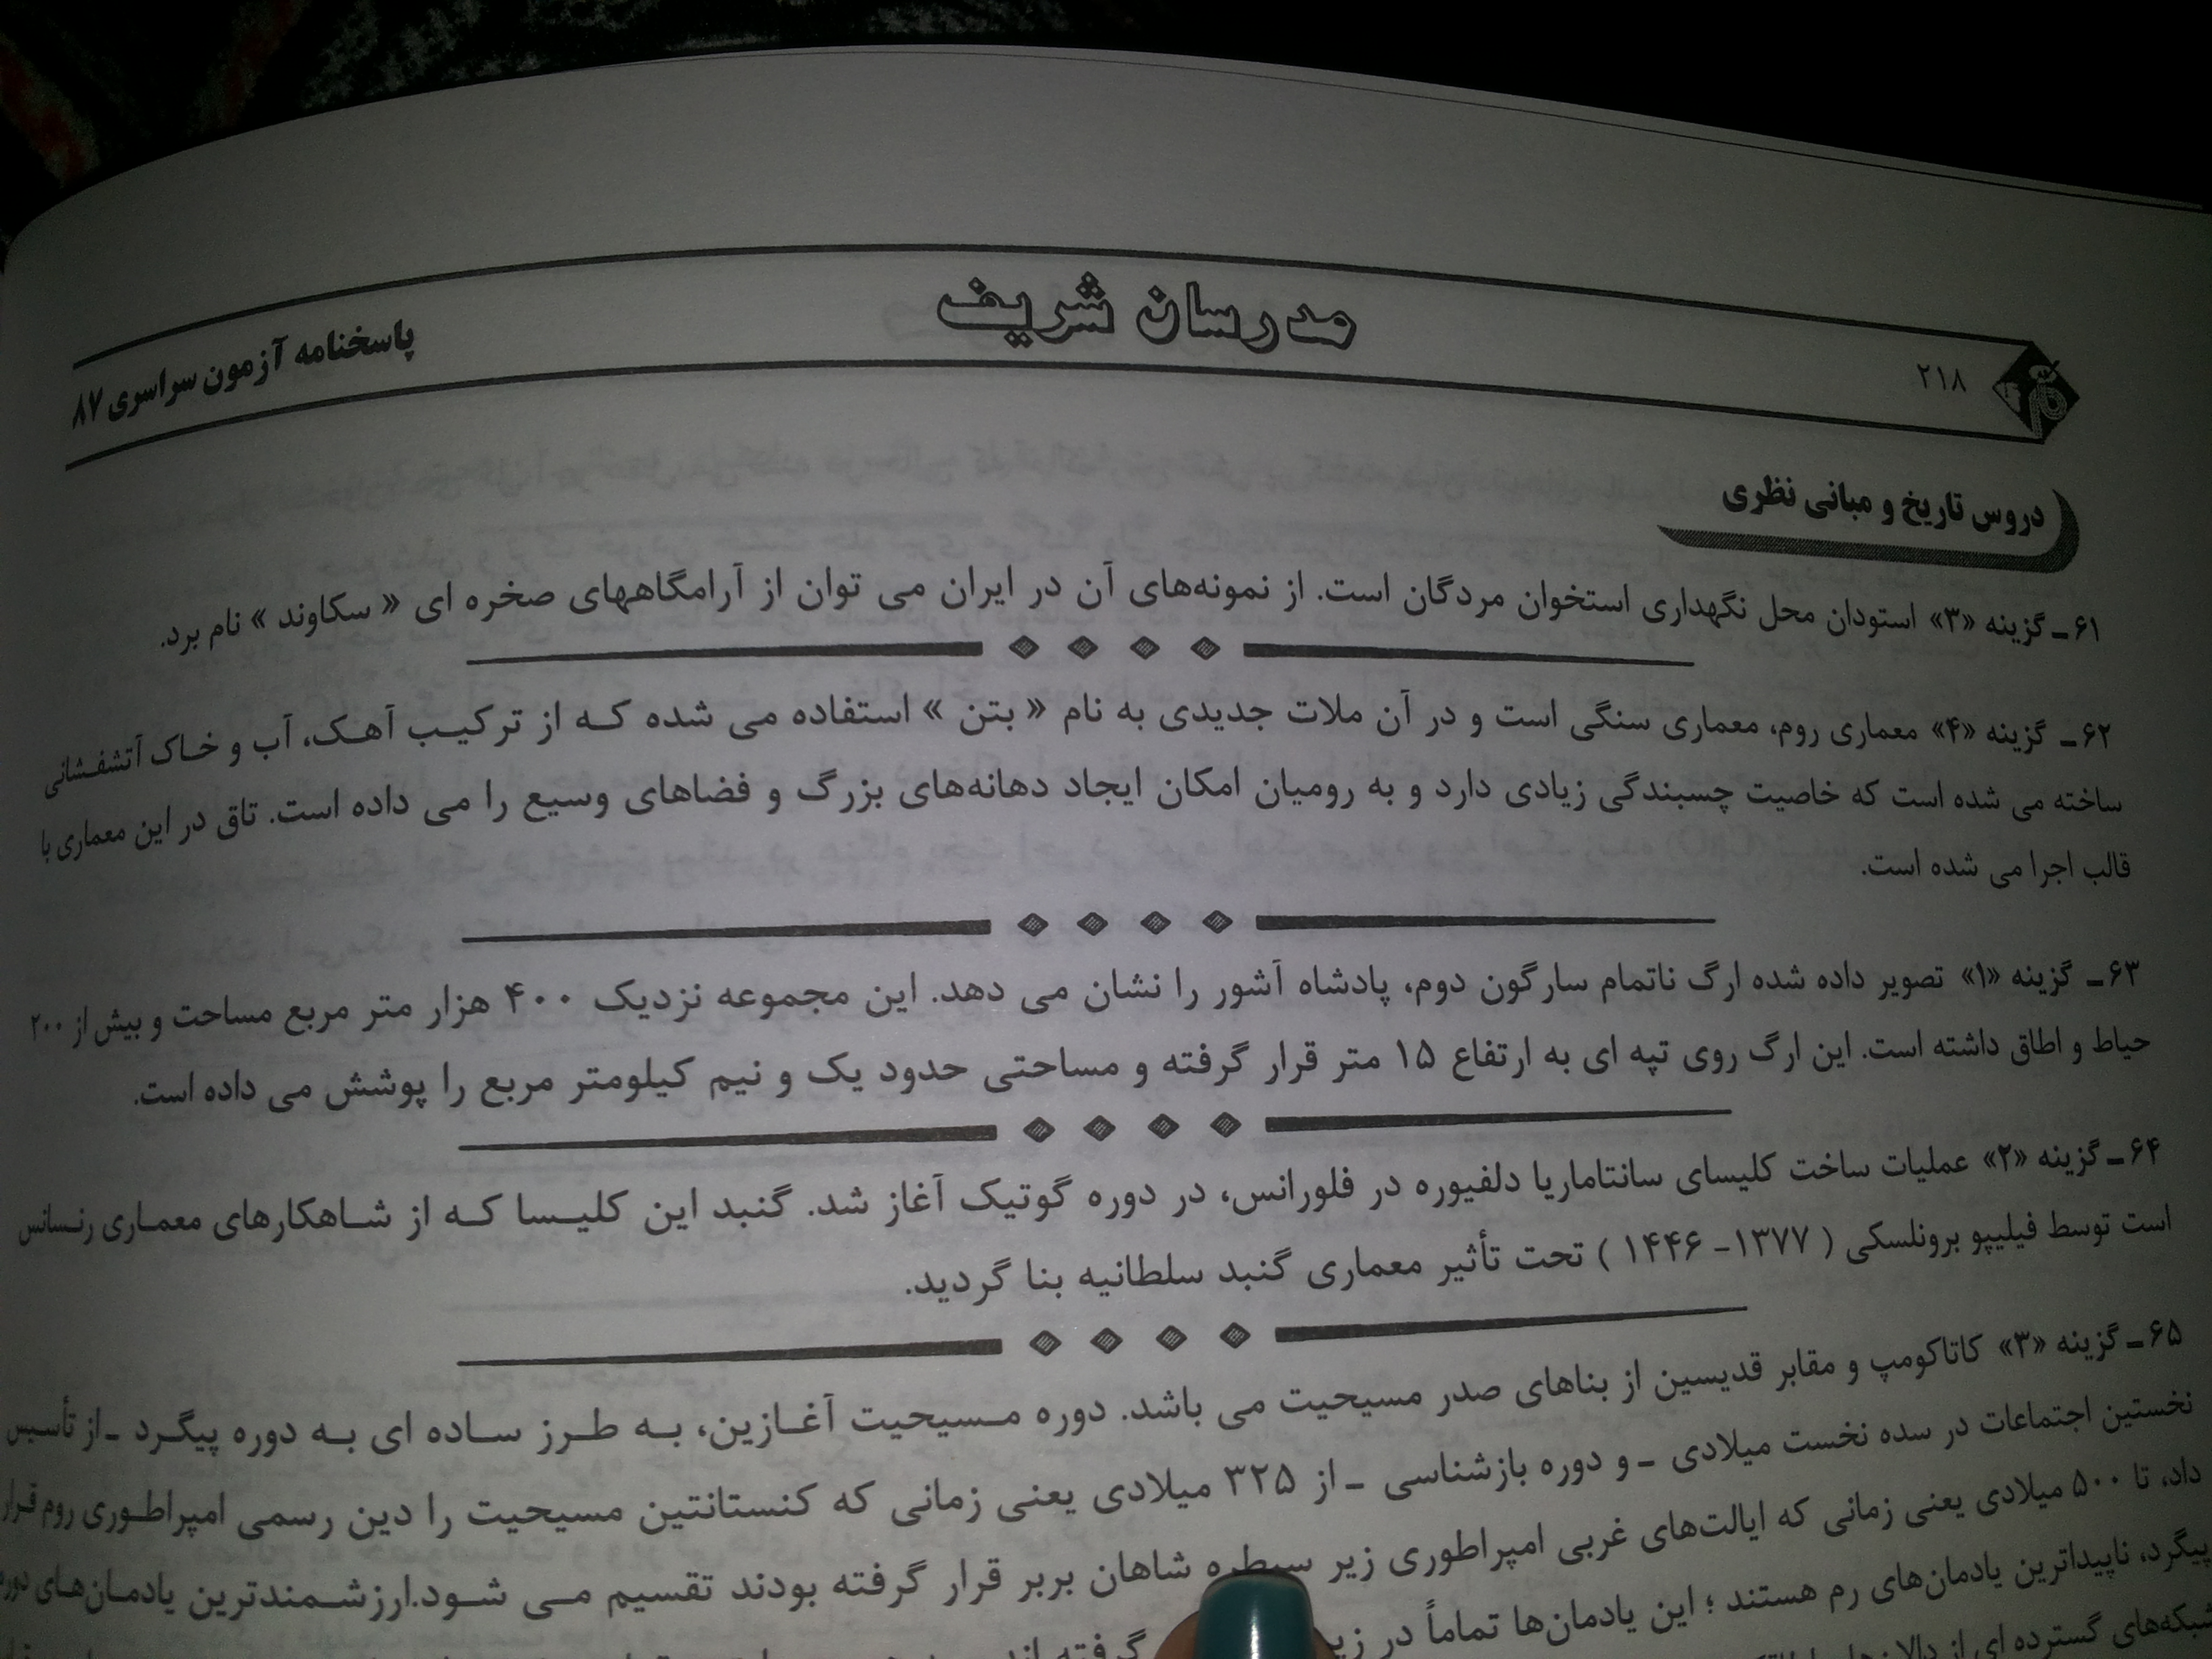 ۲۱۸
مدرسان شریف
پاسخنامه آزمون سراسری ۸۷
دروس تاریخ و مبانی نظری
۶۱ـ گزینه «۳» استودان محل نگهداری استخوان مردگان است. از نمونه‌های آن در ایران می توان از آرامگاههای صخره ای « سکاوند » نام برد.
۶۲ـ گزینه «۴» معماری روم، معماری سنگی است و در آن ملات جدیدی به نام « بتن » استفاده می شده که از ترکیب آهک، آب و خاک آتشفشانی
ساخته می شده است که خاصیت چسبندگی زیادی دارد و به رومیان امکان ایجاد دهانه‌های بزرگ و فضاهای وسیع را می داده است. تاق در این معماری با
قالب اجرا می شده است.
۶۳ـ گزینه «۱» تصویر داده شده ارگ ناتمام سارگون دوم، پادشاه آشور را نشان می دهد. این مجموعه نزدیک ۴۰۰ هزار متر مربع مساحت و بیش از ۲۰۰
حیاط و اطاق داشته است. این ارگ روی تپه ای به ارتفاع ۱۵ متر قرار گرفته و مساحتی حدود یک و نیم کیلومتر مربع را پوشش می داده است.
۶۴ـ گزینه «۲» عملیات ساخت کلیسای سانتاماریا دلفیوره در فلورانس، در دوره گوتیک آغاز شد. گنبد این کلیسا که از شاهکارهای معماری رنسانس
است توسط فیلیپو برونلسکی ( ۱۳۷۷- ۱۴۴۶ ) تحت تأثیر معماری گنبد سلطانیه بنا گردید.
۶۵ـ گزینه «۳» کاتاکومپ و مقابر قدیسین از بناهای صدر مسیحیت می باشد. دوره مسیحیت آغازین، به طرز ساده ای به دوره پیگرد ـ از تأسیس
نخستین اجتماعات در سده نخست میلادی ـ و دوره بازشناسی ـ از ۳۲۵ میلادی یعنی زمانی که کنستانتین مسیحیت را دین رسمی امپراطوری روم قرار
داد، تا ۵۰۰ میلادی یعنی زمانی که ایالت‌های غربی امپراطوری زیر سیطره شاهان بربر قرار گرفته بودند تقسیم می شود.ارزشمندترین یادمان‌های دوره
پیگرد، ناپیداترین یادمان‌های رم هستند ؛ این یادمان‌ها تماماً در گرفته اند
شبکه‌های گسترده ای از